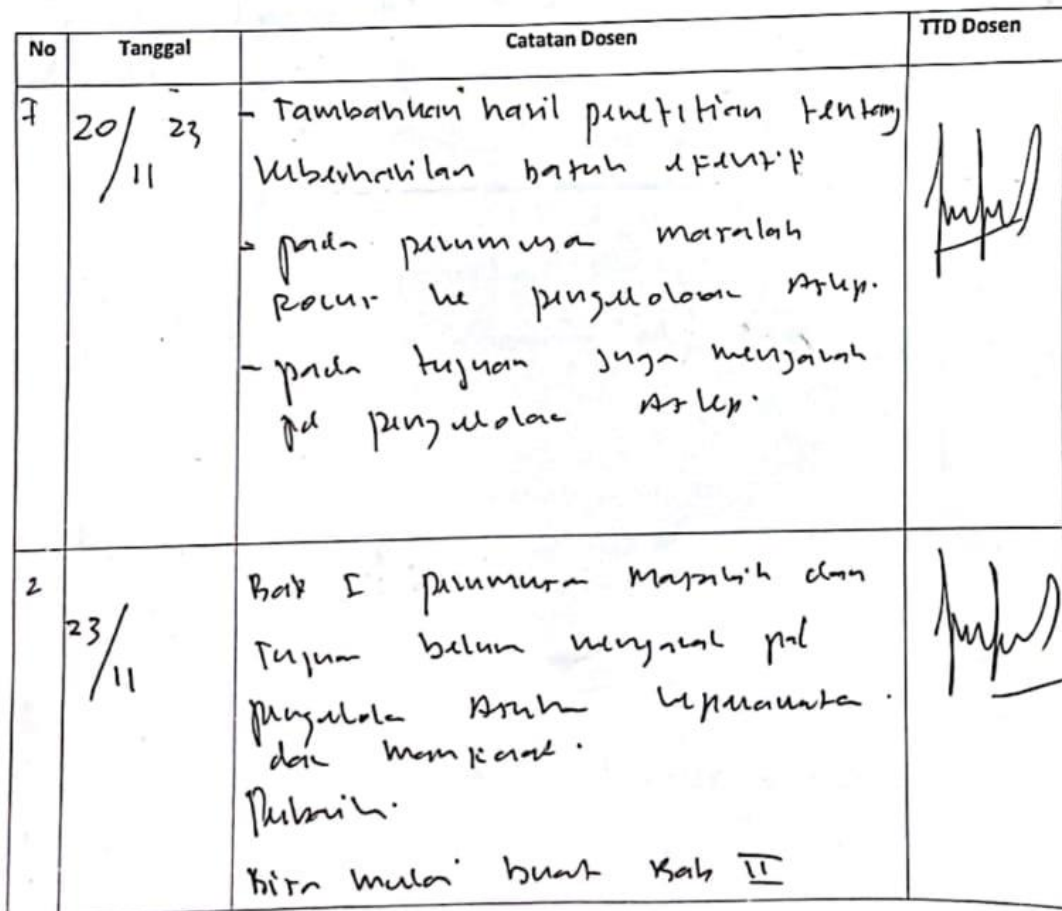 No Tanggal Catatan Dosen TTD Dosen
1 20/11 23 - Tambahkan hasil penelitian tentang
keberhasilan batuk efektif
- pada perumusa masalah
Focus ke pengelolaan Askep.
- pada tujuan juga mengarah
pd pengelolaa Askep.
2 23/11 Bab I perumusan masalah dan
Tujuan belum mengarah pd
pengelola Asuhan keperawata
dan manfaat.
Perbaiki.
Bisa mulai buat Bab II